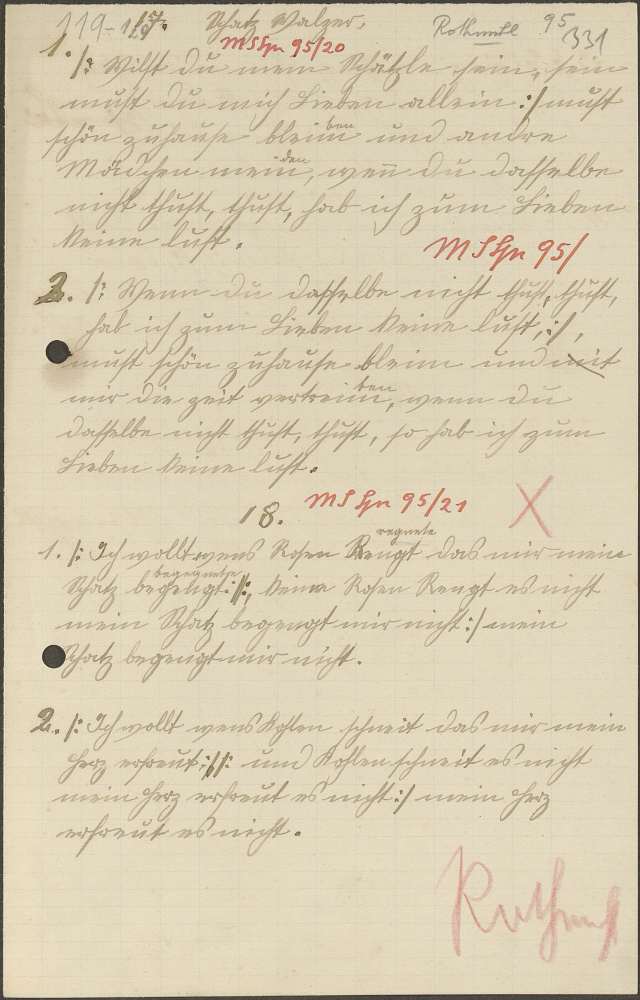 119- 17. Schatz Walzer. Rothmühl 95 331
MSHn 95/20
1. /: Wilst du mein Schätzle sein, sein
must du mich Lieben allein :/ must
schön zuhause bleim ben und andre
Mädchen mein den, wen̄ du dasselbe
nicht thust, thust, hab ich zum Lieben
keine lust.
MSHn 95/
2. /: Wenn du dasselbe nicht thust, thust,
hab ich zum Lieben keine lust, :/,
must schön zuhause bleim und mit
mir die zeit vertreim ben, wenn du
dasselbe nicht thust, thust, so hab ich zum
Lieben keine lust.
18. MSHn 95/21 X
regnete
1. /: Ich wollt wens Rosen Rengt das mir mein
begegnete
Schatz begengt :/:, keine Rosen Rengt es nicht
mein Schatz begengt mir nicht :/ mein
Schatz begengt mir nicht.
2. /: Ich wollt wens Kohlen schneit das mir mein
Herz erfreut :/: und Kohlen schneit es nicht
mein Herz erfreut es nicht :/ mein Herz
erfreut es nicht.